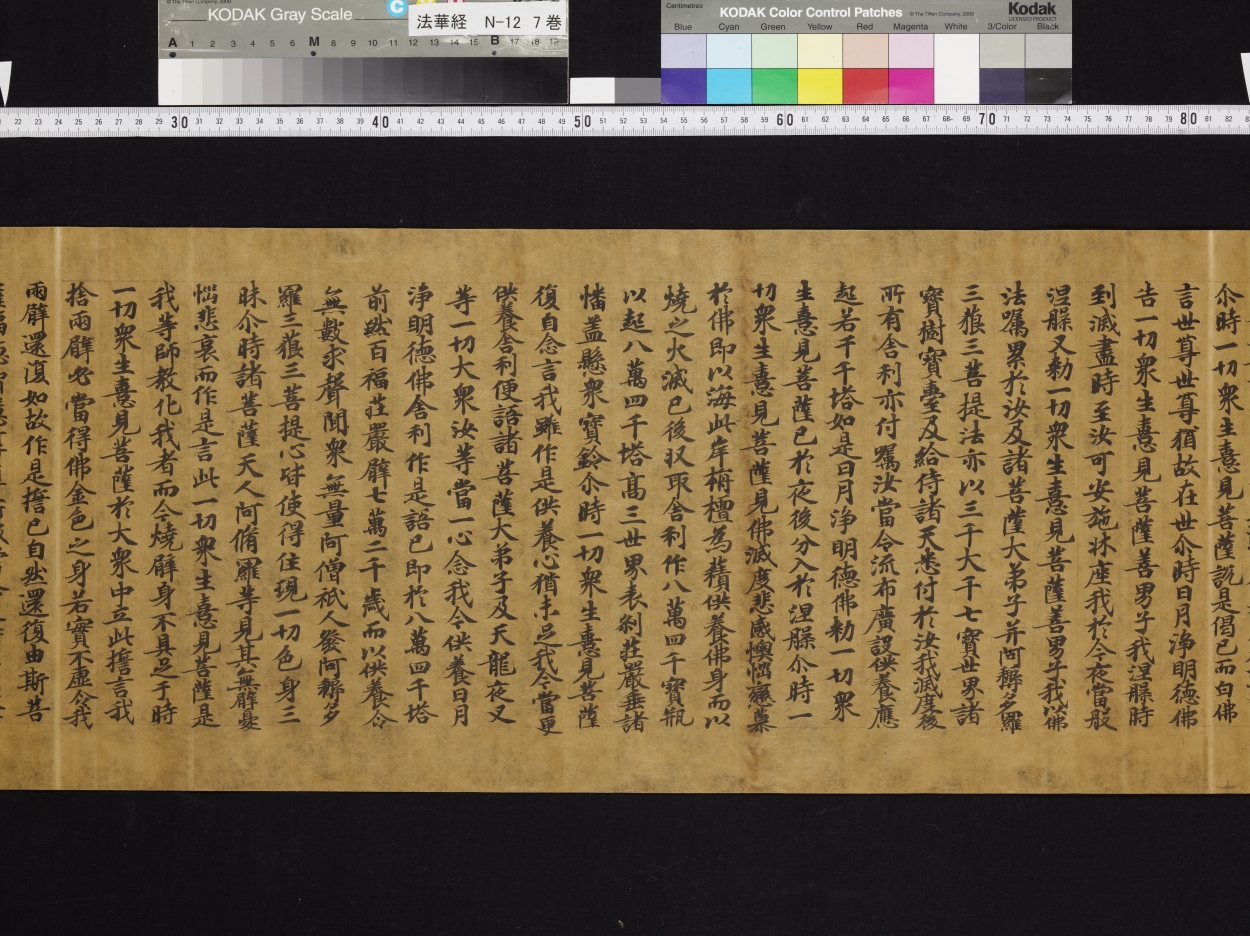 © The Tiffen Company, 2000
KODAK Gray Scale
C
法華経 N-12 7巻
A 1 2 3 4 5 6 M 8 9 10 11 12 13 14 15 B 17 18 19
Centimetres
KODAK Color Control Patches © The Tiffen Company, 2000
Kodak
LICENSED PRODUCT
Blue Cyan Green Yellow Red Magenta White 3/Color Black
22 23 24 25 26 27 28 29 30 31 32 33 34 35 36 37 38 39 40 41 42 43 44 45 46 47 48 49 50 51 52 53 54 55 56 57 58 59 60 61 62 63 64 65 66 67 68 69 70 71 72 73 74 75 76 77 78 79 80 81 82
尒時一切衆生憙見菩薩說是偈已而白佛
言世尊世尊猶故在世尒時日月淨明德佛
告一切衆生憙見菩薩善男子我涅槃時
到滅盡時至汝可安施牀座我於今夜當般
涅槃又勅一切衆生憙見菩薩善男子我以佛
法囑累於汝及諸菩薩大弟子并阿耨多羅
三藐三菩提法亦以三千大千七寶世界諸
寶樹寶臺及給侍諸天悉付於汝我滅度後
所有舍利亦付囑汝當令流布廣設供養應
起若千千塔如是日月淨明德佛勅一切衆
生憙見菩薩已於夜後分入於涅槃尒時一
切衆生憙見菩薩見佛滅度悲感懊惱戀慕
於佛即以海此岸栴檀為𧂐供養佛身而以
燒之火滅已後收取舍利作八萬四千寶瓶
以起八萬四千塔高三世界表剎莊嚴垂諸
幡蓋懸衆寶鈴尒時一切衆生憙見菩薩
復自念言我雖作是供養心猶未足我今當更
供養舍利便語諸菩薩大弟子及天龍夜叉
等一切大衆汝等當一心念我今供養日月
淨明德佛舍利作是語已即於八萬四千塔
前然百福莊嚴臂七萬二千歲而以供養令
無數求聲聞衆無量阿僧祇人發阿耨多
羅三藐三菩提心皆使得住現一切色身三
昧尒時諸菩薩天人阿脩羅等見其無臂憂
惱悲哀而作是言此一切衆生憙見菩薩是
我等師教化我者而今燒臂身不具足于時
一切衆生憙見菩薩於大衆中立此誓言我
捨兩臂必當得佛金色之身若實不虛令我
兩臂還復如故作是誓已自然還復由斯菩